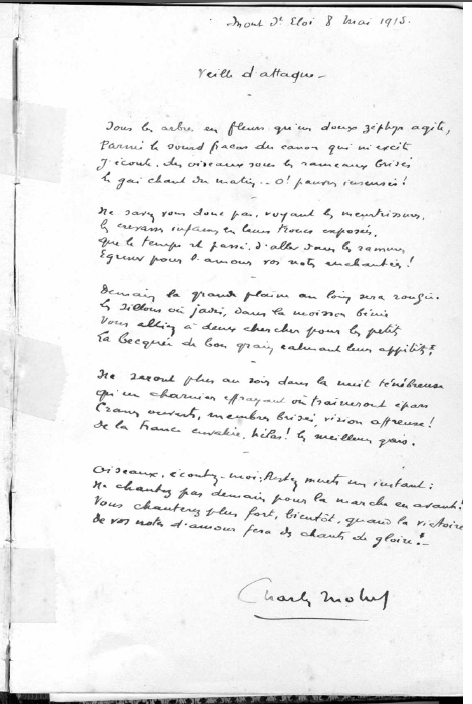 Mont St Eloi 8 Mai 1915.
Veille d'attaque -
Sous les arbres en fleurs qu'un doux zéphyr agite,
Parmi le sourd fracas du canon qui m'excite
J'écoute, des oiseaux sous les rameaux brisés
Le gai chant du matin.. O! pauvres insensés!
Ne savez vous donc pas, voyant les meurtrissures,
les crevasses infames en leurs troncs exposés,
que le temps est passé, d'aller dans les ramures
Egrener pour l'amour vos notes enchantées!
Demain la grande plaine au loin sera rougie.
Les sillons où jadis, dans la moisson bénie
Vous alliez à deux chercher pour les petits
La becquée de bon grain calmant leurs appétits!
Ne seront plus au soir dans la nuit ténébreuse
qu'un charnier effrayant où traîneront épars
Cranes ouverts, membres brisés, vision affreuse!
De la France envahie, hélas! les meilleurs gars.
Oiseaux, écoutez-moi; Restez muets un instant:
Ne chantez pas demain pour la marche en avant!
Vous chanterez plus fort, bientôt, quand la victoire
de vos notes d'amour fera des chants de gloire! -